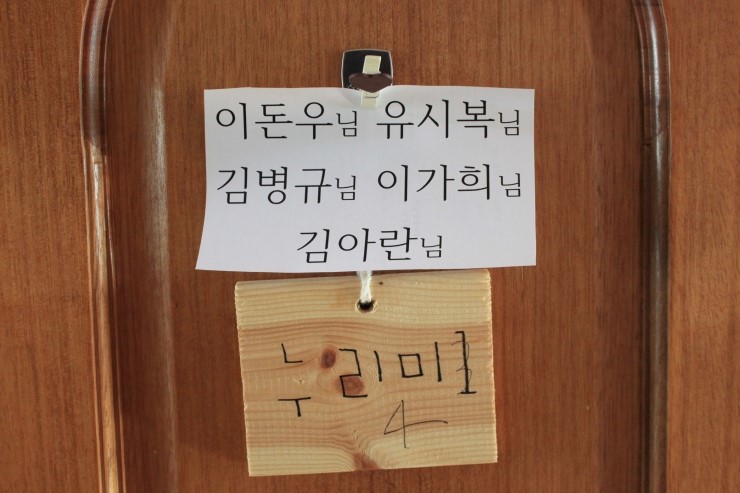 이돈우님 유시복님
김병규님 이가희님
김아란님
누리미
4